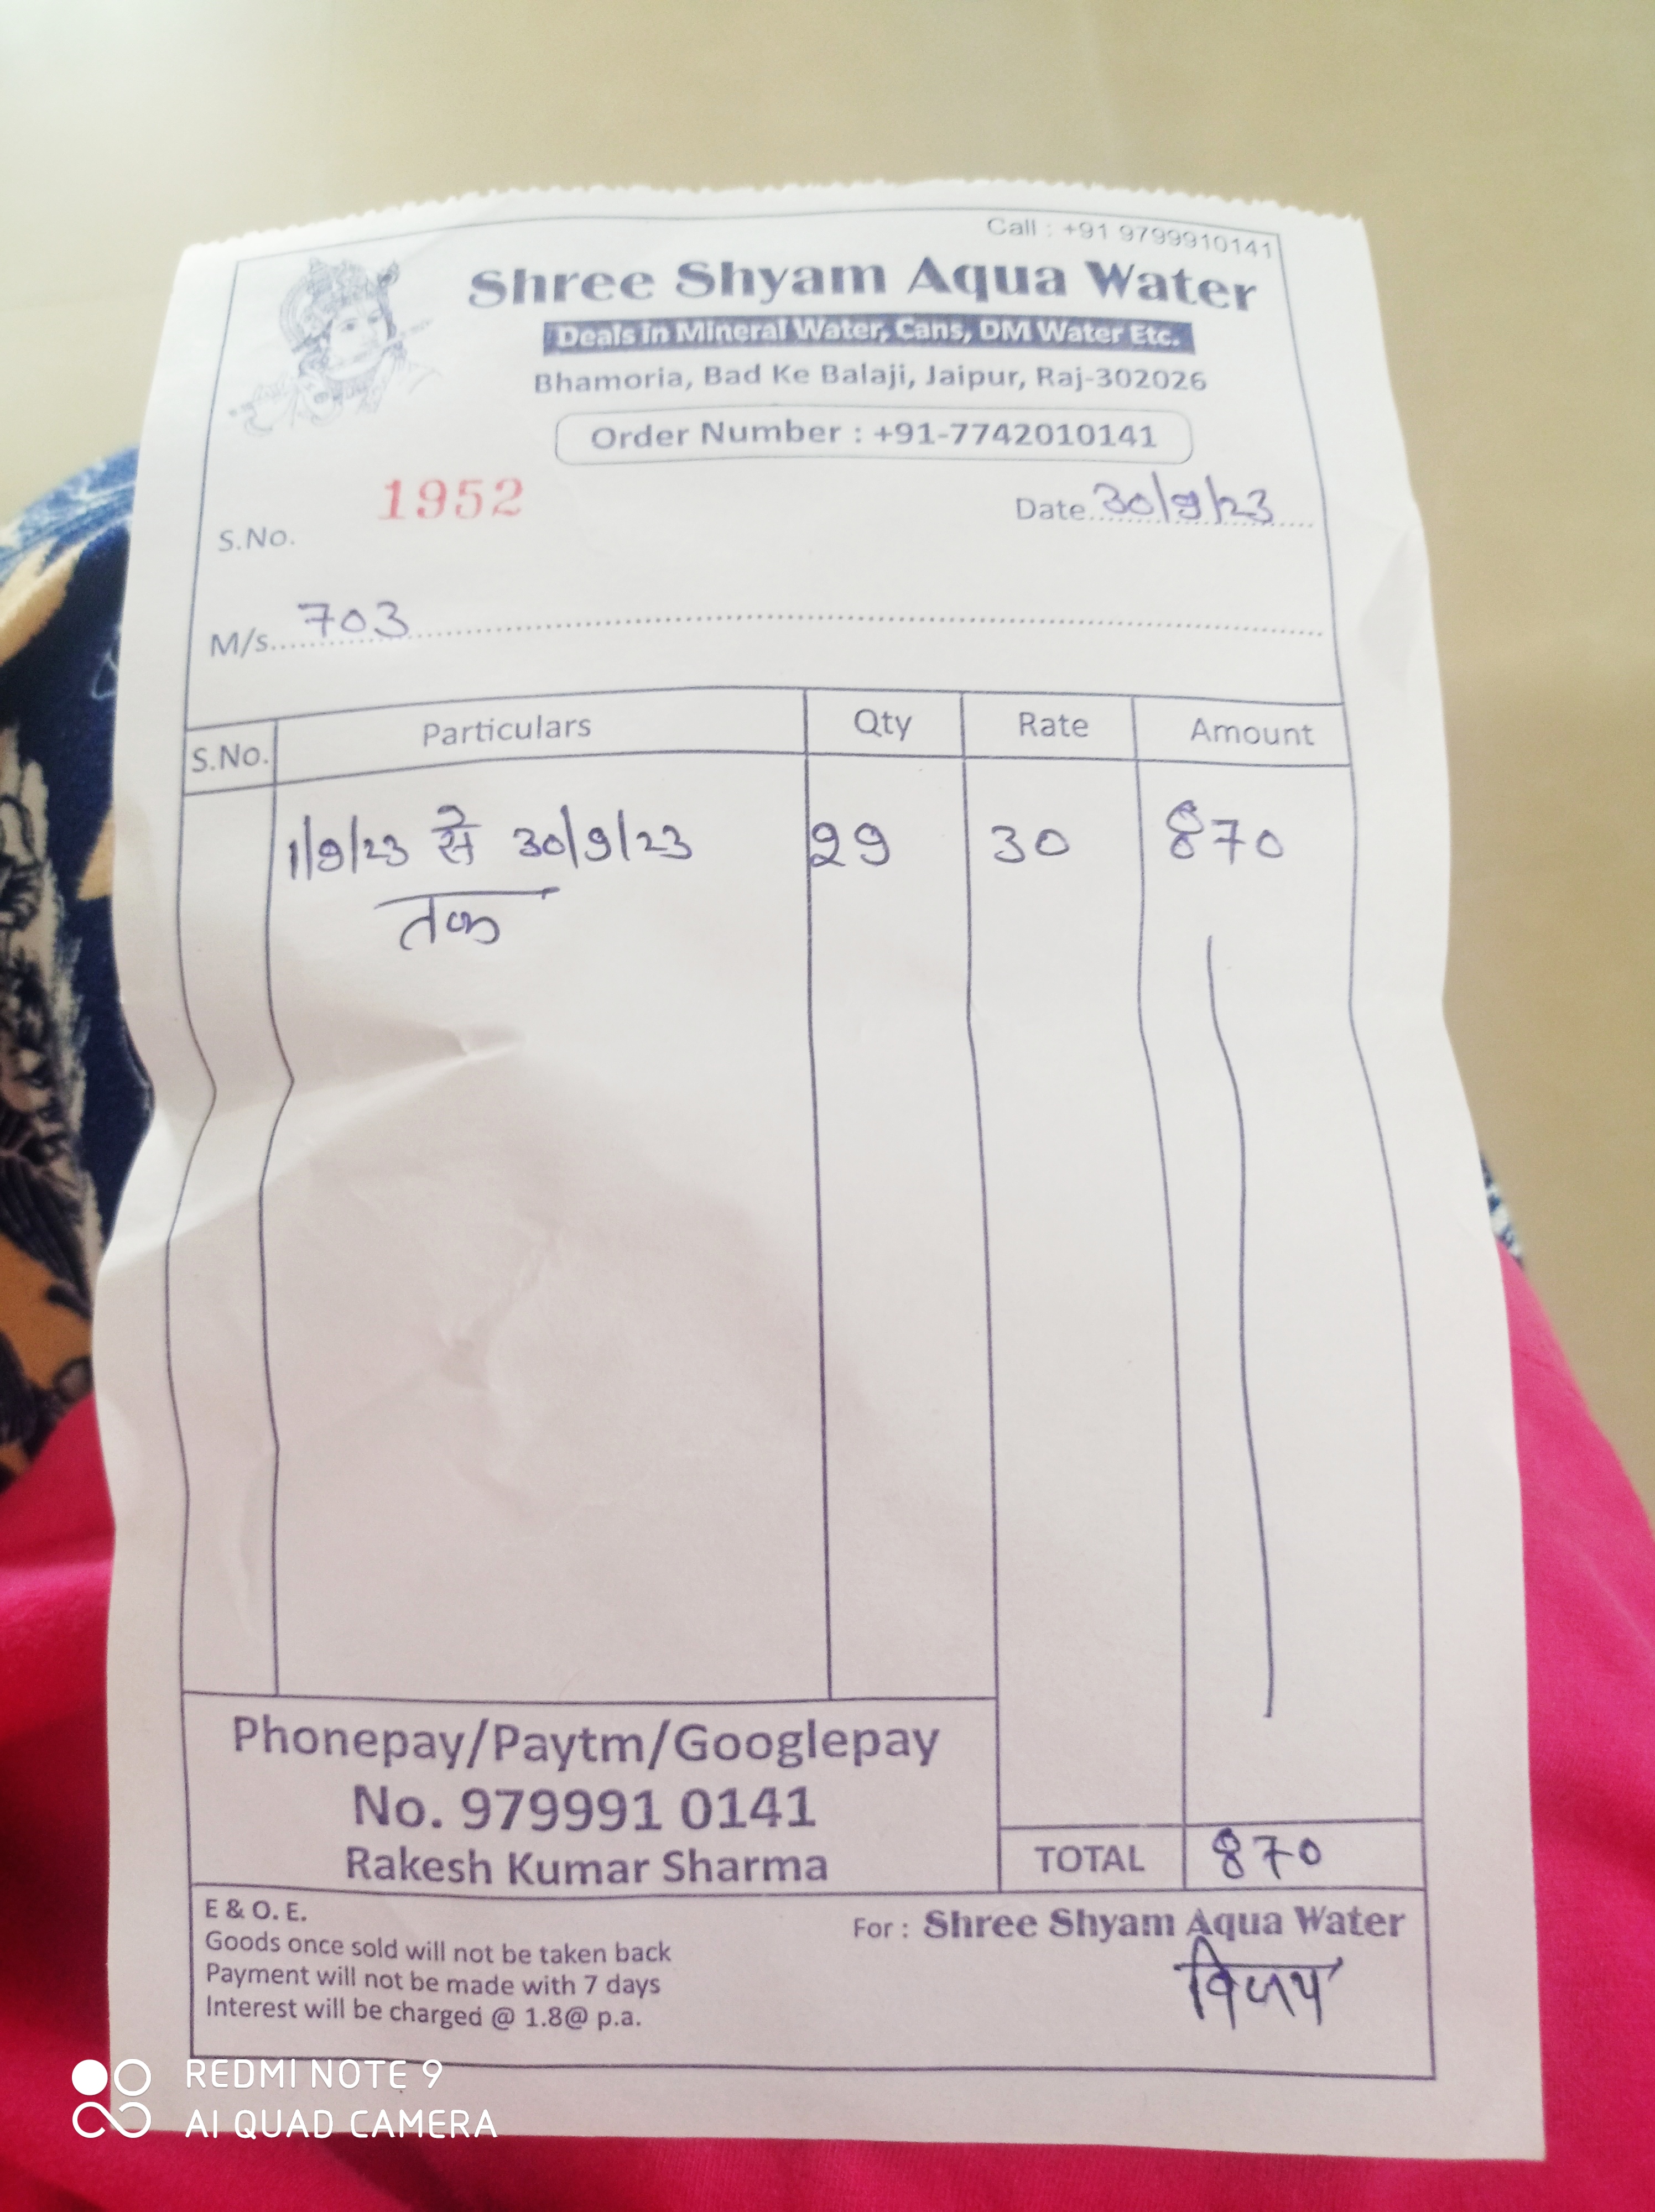 Call : +91 9799910141
Shree Shyam Aqua Water
Deals in Mineral Water, Cans, DM Water Etc.
Bhamoria, Bad Ke Balaji, Jaipur, Raj-302026
Order Number : +91-7742010141
S.No. 1952 Date 30/9/23
M/s. 703
S.No. Particulars Qty Rate Amount
1/9/23 से 30/9/23 29 30 870
तक
Phonepay/Paytm/Googlepay
No. 979991 0141
Rakesh Kumar Sharma
TOTAL 870
E & O. E.
Goods once sold will not be taken back
Payment will not be made with 7 days
Interest will be charged @ 1.8@ p.a.
For : Shree Shyam Aqua Water
विजय
REDMI NOTE 9
AI QUAD CAMERA